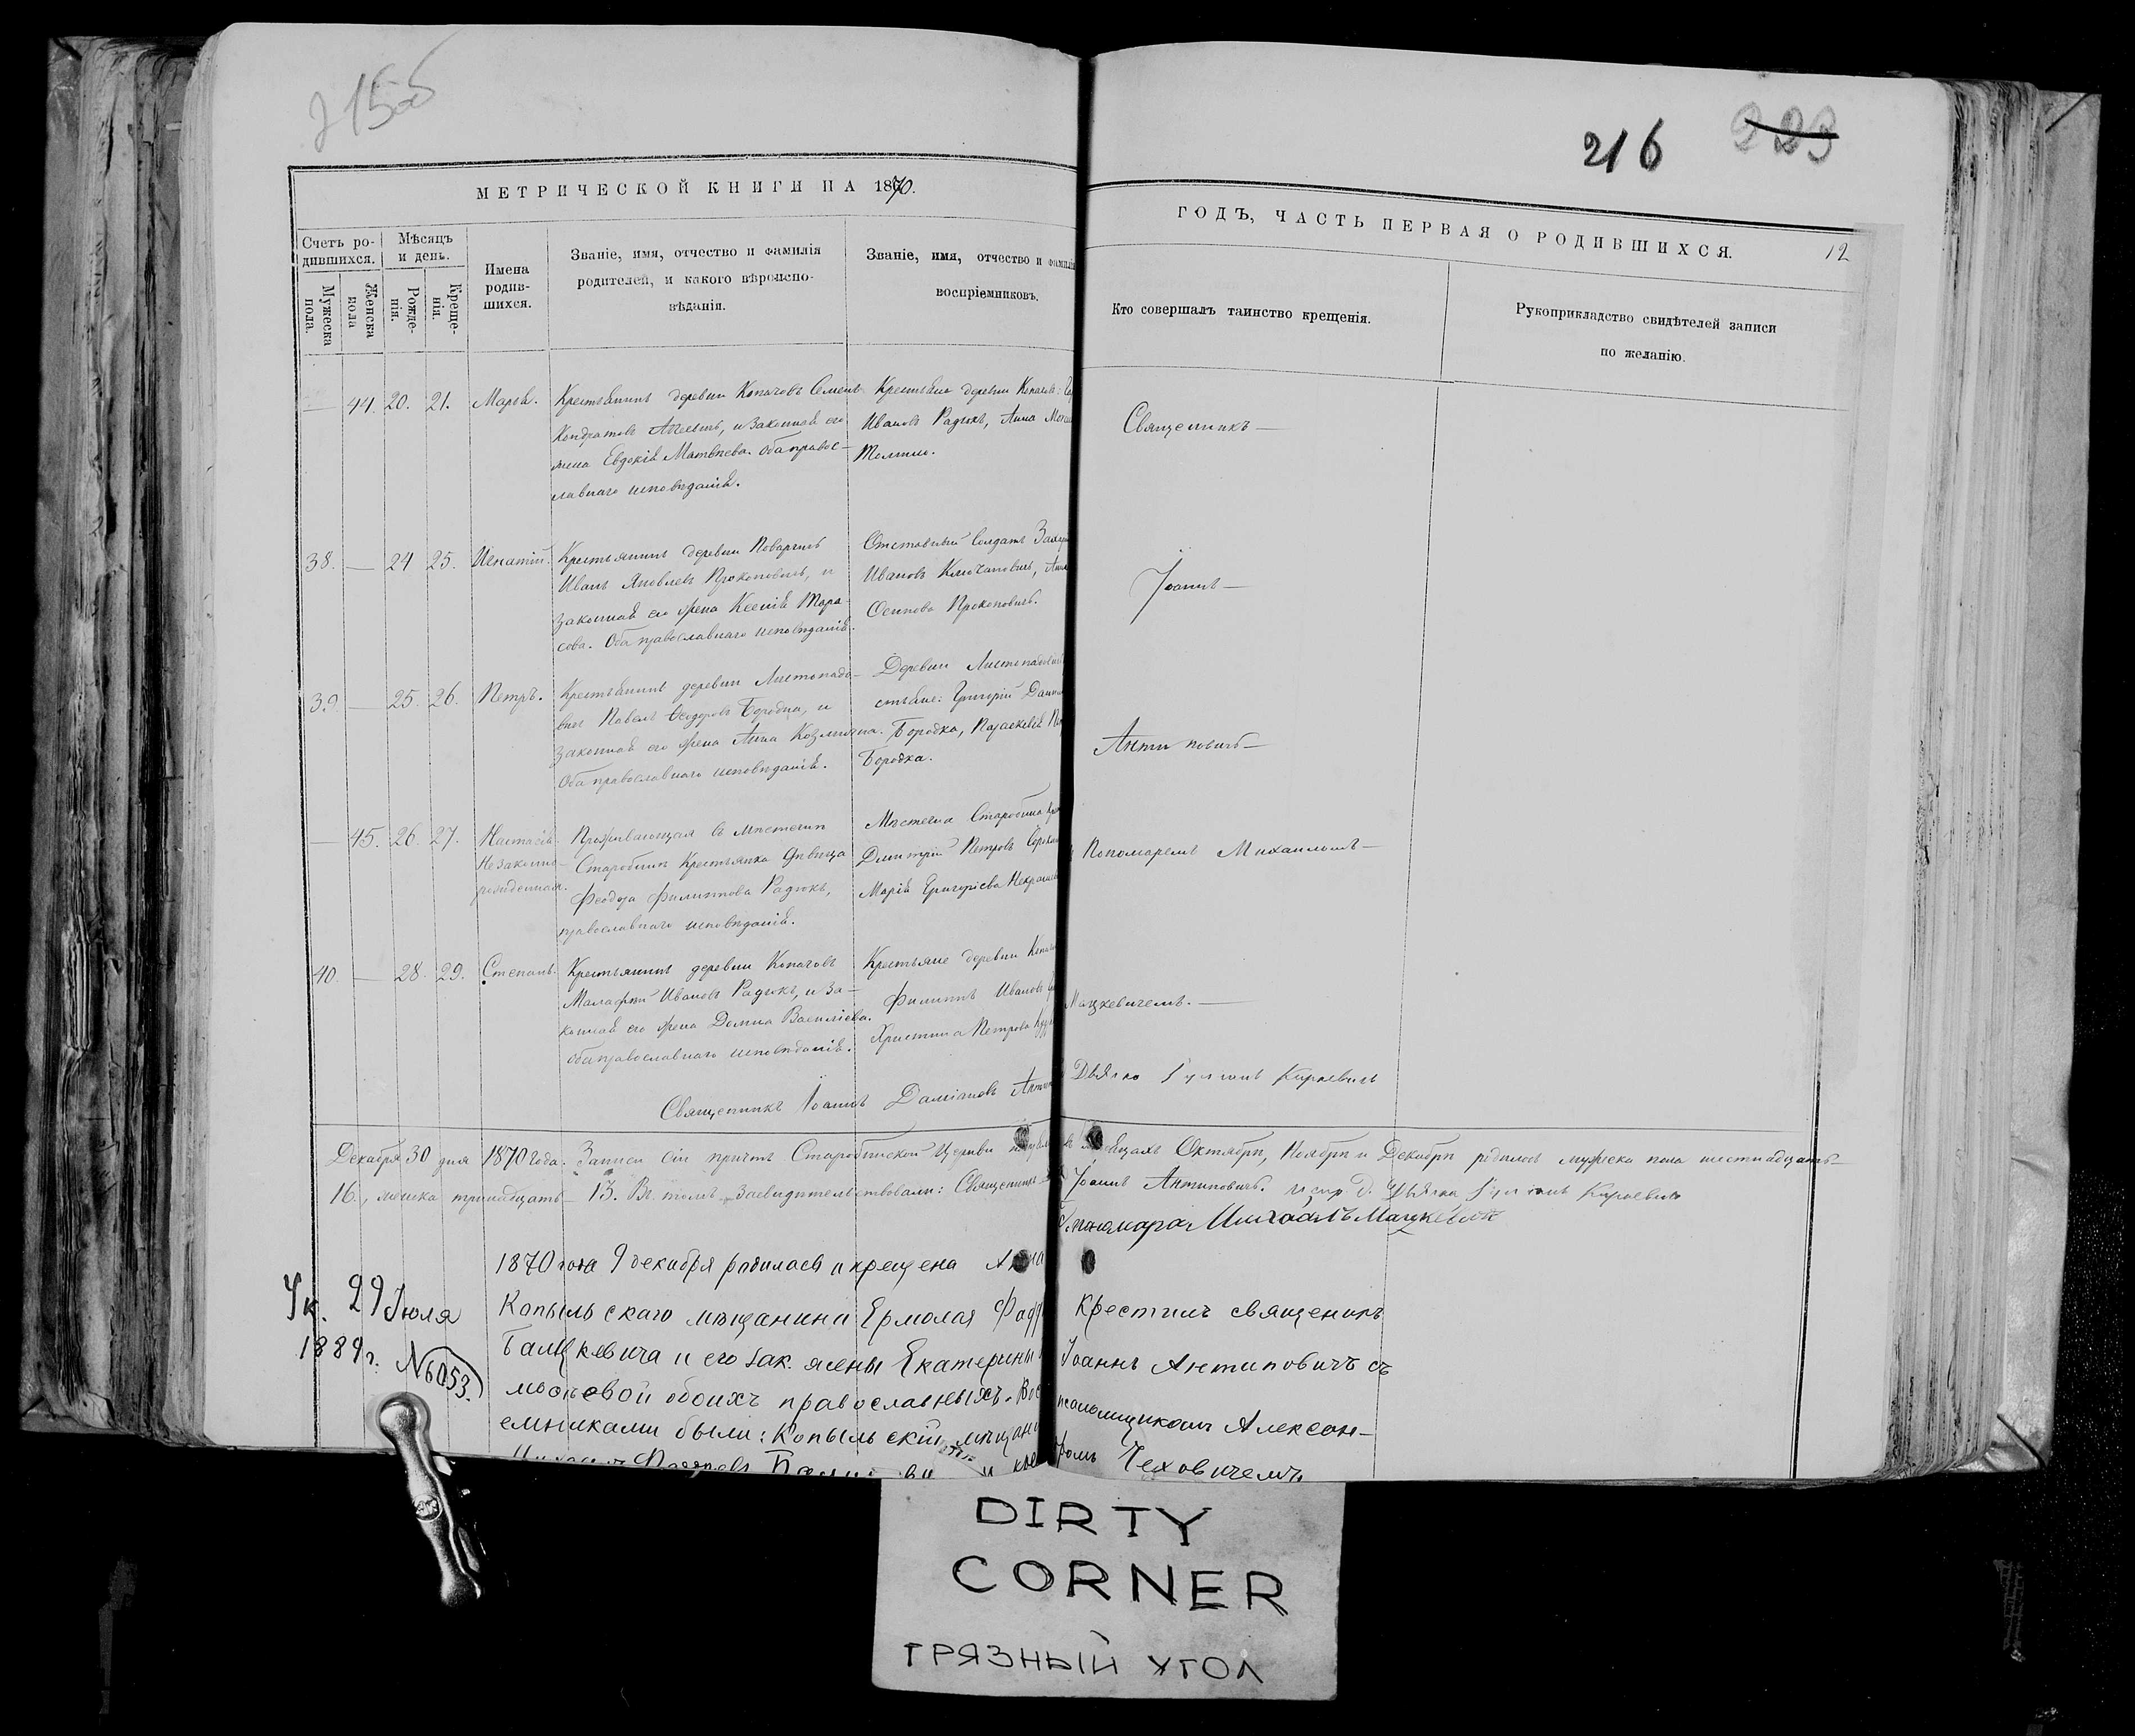 216 223
МЕТРИЧЕСКОЙ КНИГИ НА 1870.
ГОДЪ, ЧАСТЬ ПЕРВАЯ О РОДИВШИХСЯ.
12
Счетъ ро-
дившихся.
Мужеска
пола
Женска
пола
Мѣсяцъ
и день.
Рожде-
нія.
Креще-
нія.
Имена
родив-
шихся.
Званіе, имя, отчество и фамилія
родителей, и какого вѣроиспо-
вѣданія.
Званіе, имя, отчество и фамилія
воспріемниковъ.
Кто совершалъ таинство крещенія.
Рукоприкладство свидѣтелей записи
по желанію.
— 44. 20. 21. Марія.
Крестьянинъ деревни Копачовъ Семенъ
Кондратовъ и законная его
жена Евдокія Матвѣева. Оба правос-
лавнаго исповѣданія.
Крестьяне деревни
Ивановъ Радюкъ, Анна
Священникъ —
38. — 24 25. Игнатій.
Крестьянинъ деревни Поварчицъ
Иванъ Яковлевъ Прокоповичъ, и
законная его жена Ксенія Тара-
сова. Оба православнаго исповѣданія.
Отставный Солдатъ
Ивановъ Ключановичъ,
Осипова Прокоповичъ.
Іоаннъ —
39. — 25. 26. Петръ.
Крестьянинъ деревни Листопадо-
вичъ Павелъ Ѳеодоровъ Бородка, и
законная его жена Анна Козмина.
Оба православнаго исповѣданія.
Деревни
Григорій
Бородка, Параскевія
Бородка.
Антиповичъ —
— 45. 26. 27. Настасія.
Незаконно-
рожденная.
Проживающая въ мѣстечкѣ
Старобинѣ Крестьянка дѣвица
Феодора Филиппова Радюкъ,
православнаго исповѣданія.
Мѣстечка Старобина
Дмитрій Петровъ
Марія Григоріева
Пономаремъ Михаиломъ —
40. — 28. 29. Степанъ.
Крестьянинъ деревни Копачовъ
Малафей Ивановъ Радюкъ, и за-
конная его жена Домна Василіева.
Оба православнаго исповѣданія.
Крестьяне деревни
Филиппъ Ивановъ
Христина Петрова
Мацкевичемъ. —
Священникъ Іоаннъ Даміановъ
Дьячко Киркевичъ
Декабря 30 дня 1870 года. Записи сіи причтъ Старобинской Церкви Октябрѣ, Ноябрѣ и Декабрѣ родилось мужеска пола шестнадцать —
16., женска тринадцать — 13. Въ томъ засвидѣтельствовали: Священникъ Іоаннъ Антиповичъ. Киркевичъ
Пономарь Михаилъ Мацкевичъ
1870 года 9 декабря родилась и крещена Анна
Ук. 29 Іюля
1889 г. N 6053.
Копыльскаго мѣщанина Ермолая
Бацкевича и его зак. жены Екатерины
обоихъ православныхъ. Вос
емниками были: Копыльскій мѣщани
Крестилъ священникъ
Іоаннъ Антиповичъ съ
псаломщикомъ Алексан-
дромъ Чеховичемъ
DIRTY
CORNER
ГРЯЗНЫЙ УГОЛ